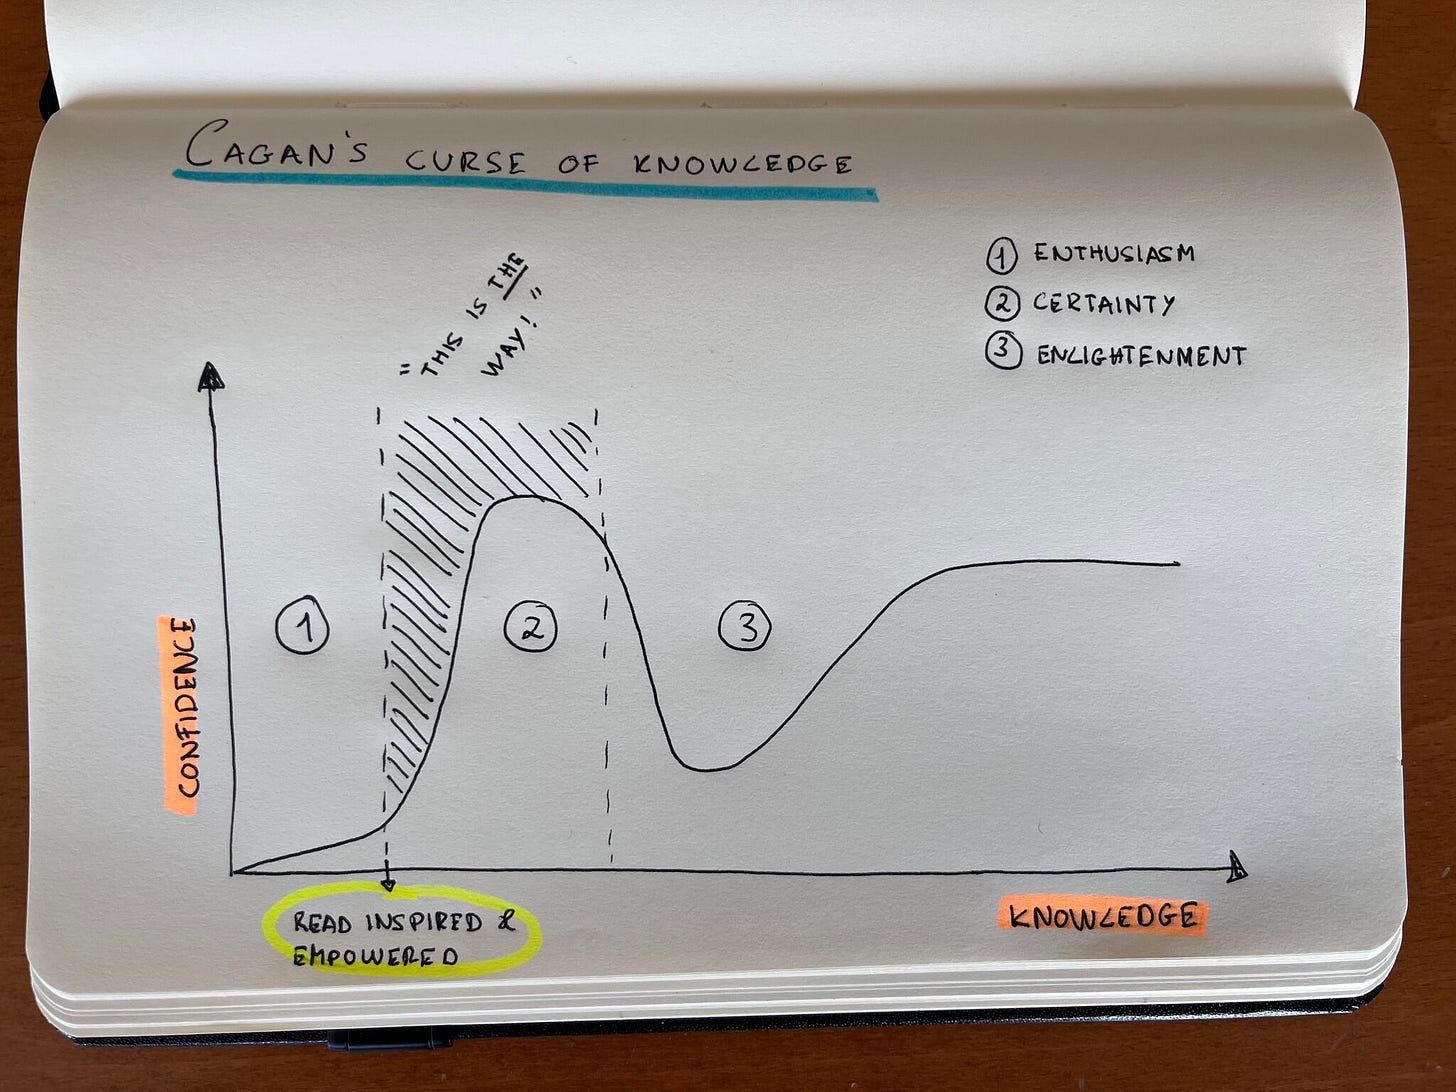 CAGAN'S CURSE OF KNOWLEDGE
① ENTHUSIASM
② CERTAINTY
③ ENLIGHTENMENT
"THIS IS THE
WAY!"
CONFIDENCE
①
②
③
READ INSPIRED &
EMPOWERED
KNOWLEDGE